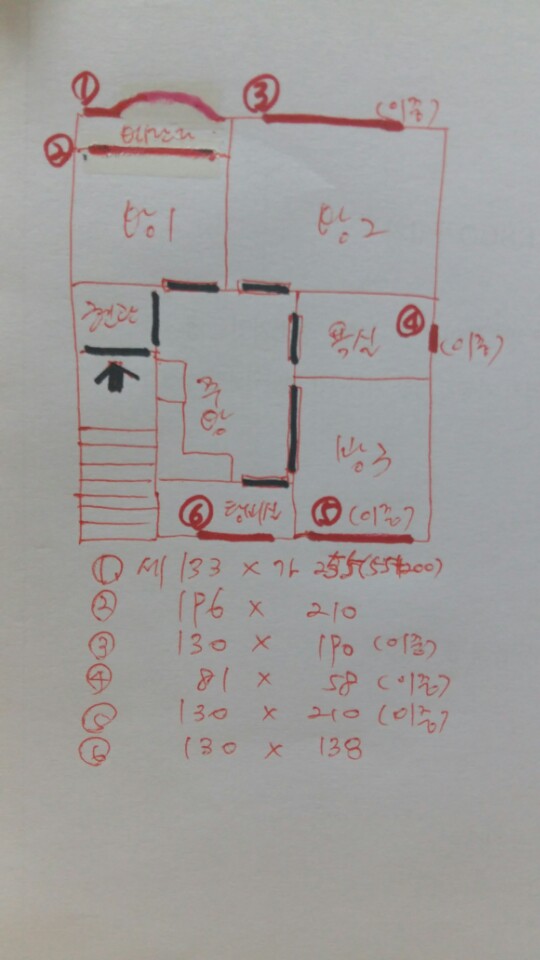 ①
③ (이중)
②
베란다
방1
방2
현관
욕실
④
(이중)
주방
방3
⑥ ⑤ (이중)
① 세 133 × 가 255(55+200)
② 196 × 210
③ 130 × 190 (이중)
④ 81 × 58 (이중)
⑤ 130 × 210 (이중)
⑥ 130 × 138